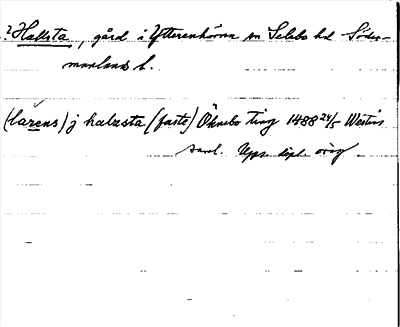 ? Hallsta, gård i Ytterenhörna sn Selebo hd Söder-
manlands l.
(larens) j halzsta (faste) Öknebo ting 1488 24/5 Westins
saml. Upps. dipl. orig